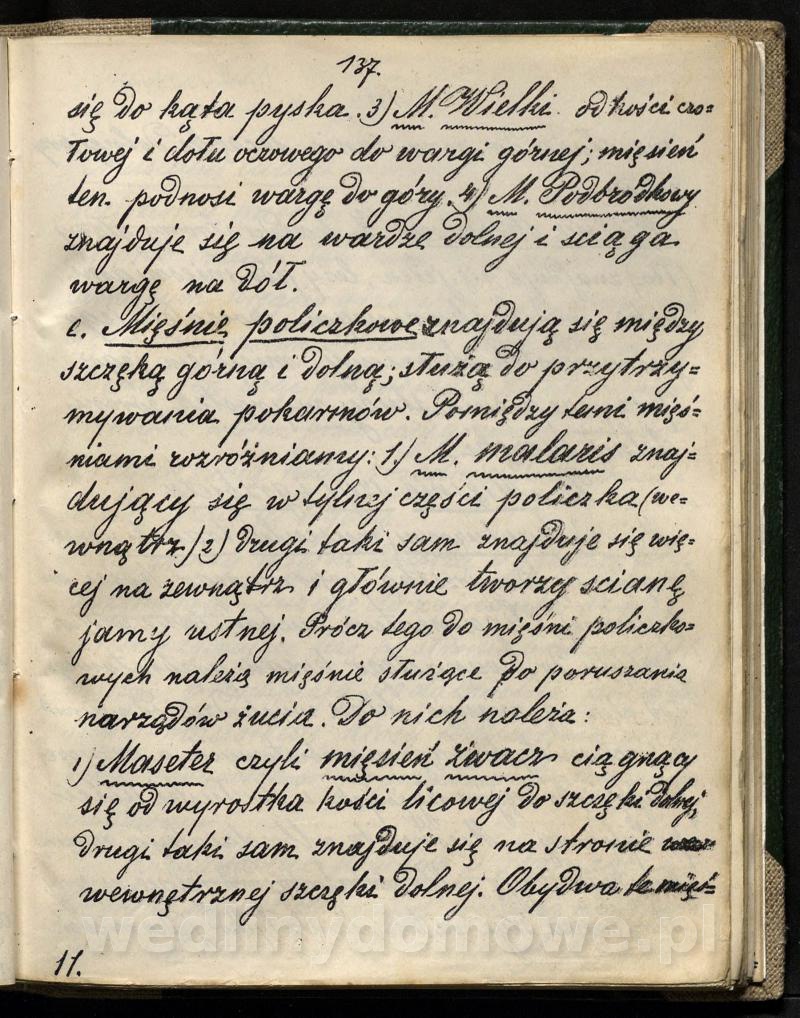 137.
się do kąta pyska. 3) M. Wielki od kości czo=
łowej i dołu oczowego do wargi górnej; mięsień
ten podnosi wargę do góry. 4) M. Podbródkowy
znajduje się na wardze dolnej i sciąga
wargę na dół.
c. Mięśnie policzkowe znajdują się między
szczęką górną i dolną; służą do przytrzy=
mywania pokarmów. Pomiędzy temi mięś=
niami rozróżniamy: 1.) M. malaris znaj=
dujący się w tylnej części policzka (we=
wnątrz.) 2) drugi taki sam znajduje się wię=
cej na zewnątrz i głównie tworzy scianę
jamy ustnej. Prócz tego do mięśni policzko=
wych należą mięśnie służące do poruszania
narządów żucia. Do nich należa:
1) Maseter czyli mięsień żwacz ciągnący
się od wyrostka kości licowej do szczęki dolnej,
drugi taki sam znajduje się na stronie
wewnętrznej szczęki dolnej. Obydwa te mięś=
11.
wedlinydomowe.pl